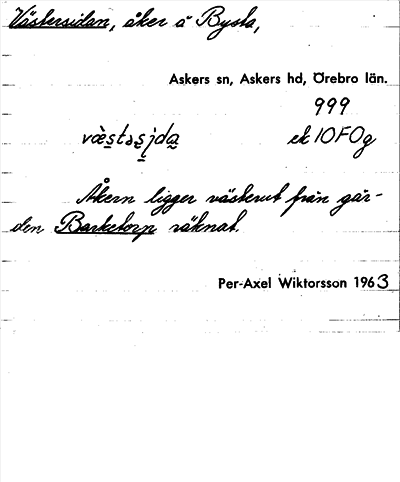 Västersidan, åker å Bysta,
Askers sn, Askers hd, Örebro län.
999
væ̀stəṣjda ek 10F0g
Åkern ligger västerut från går-
den Barketorp räknat.
Per-Axel Wiktorsson 1963